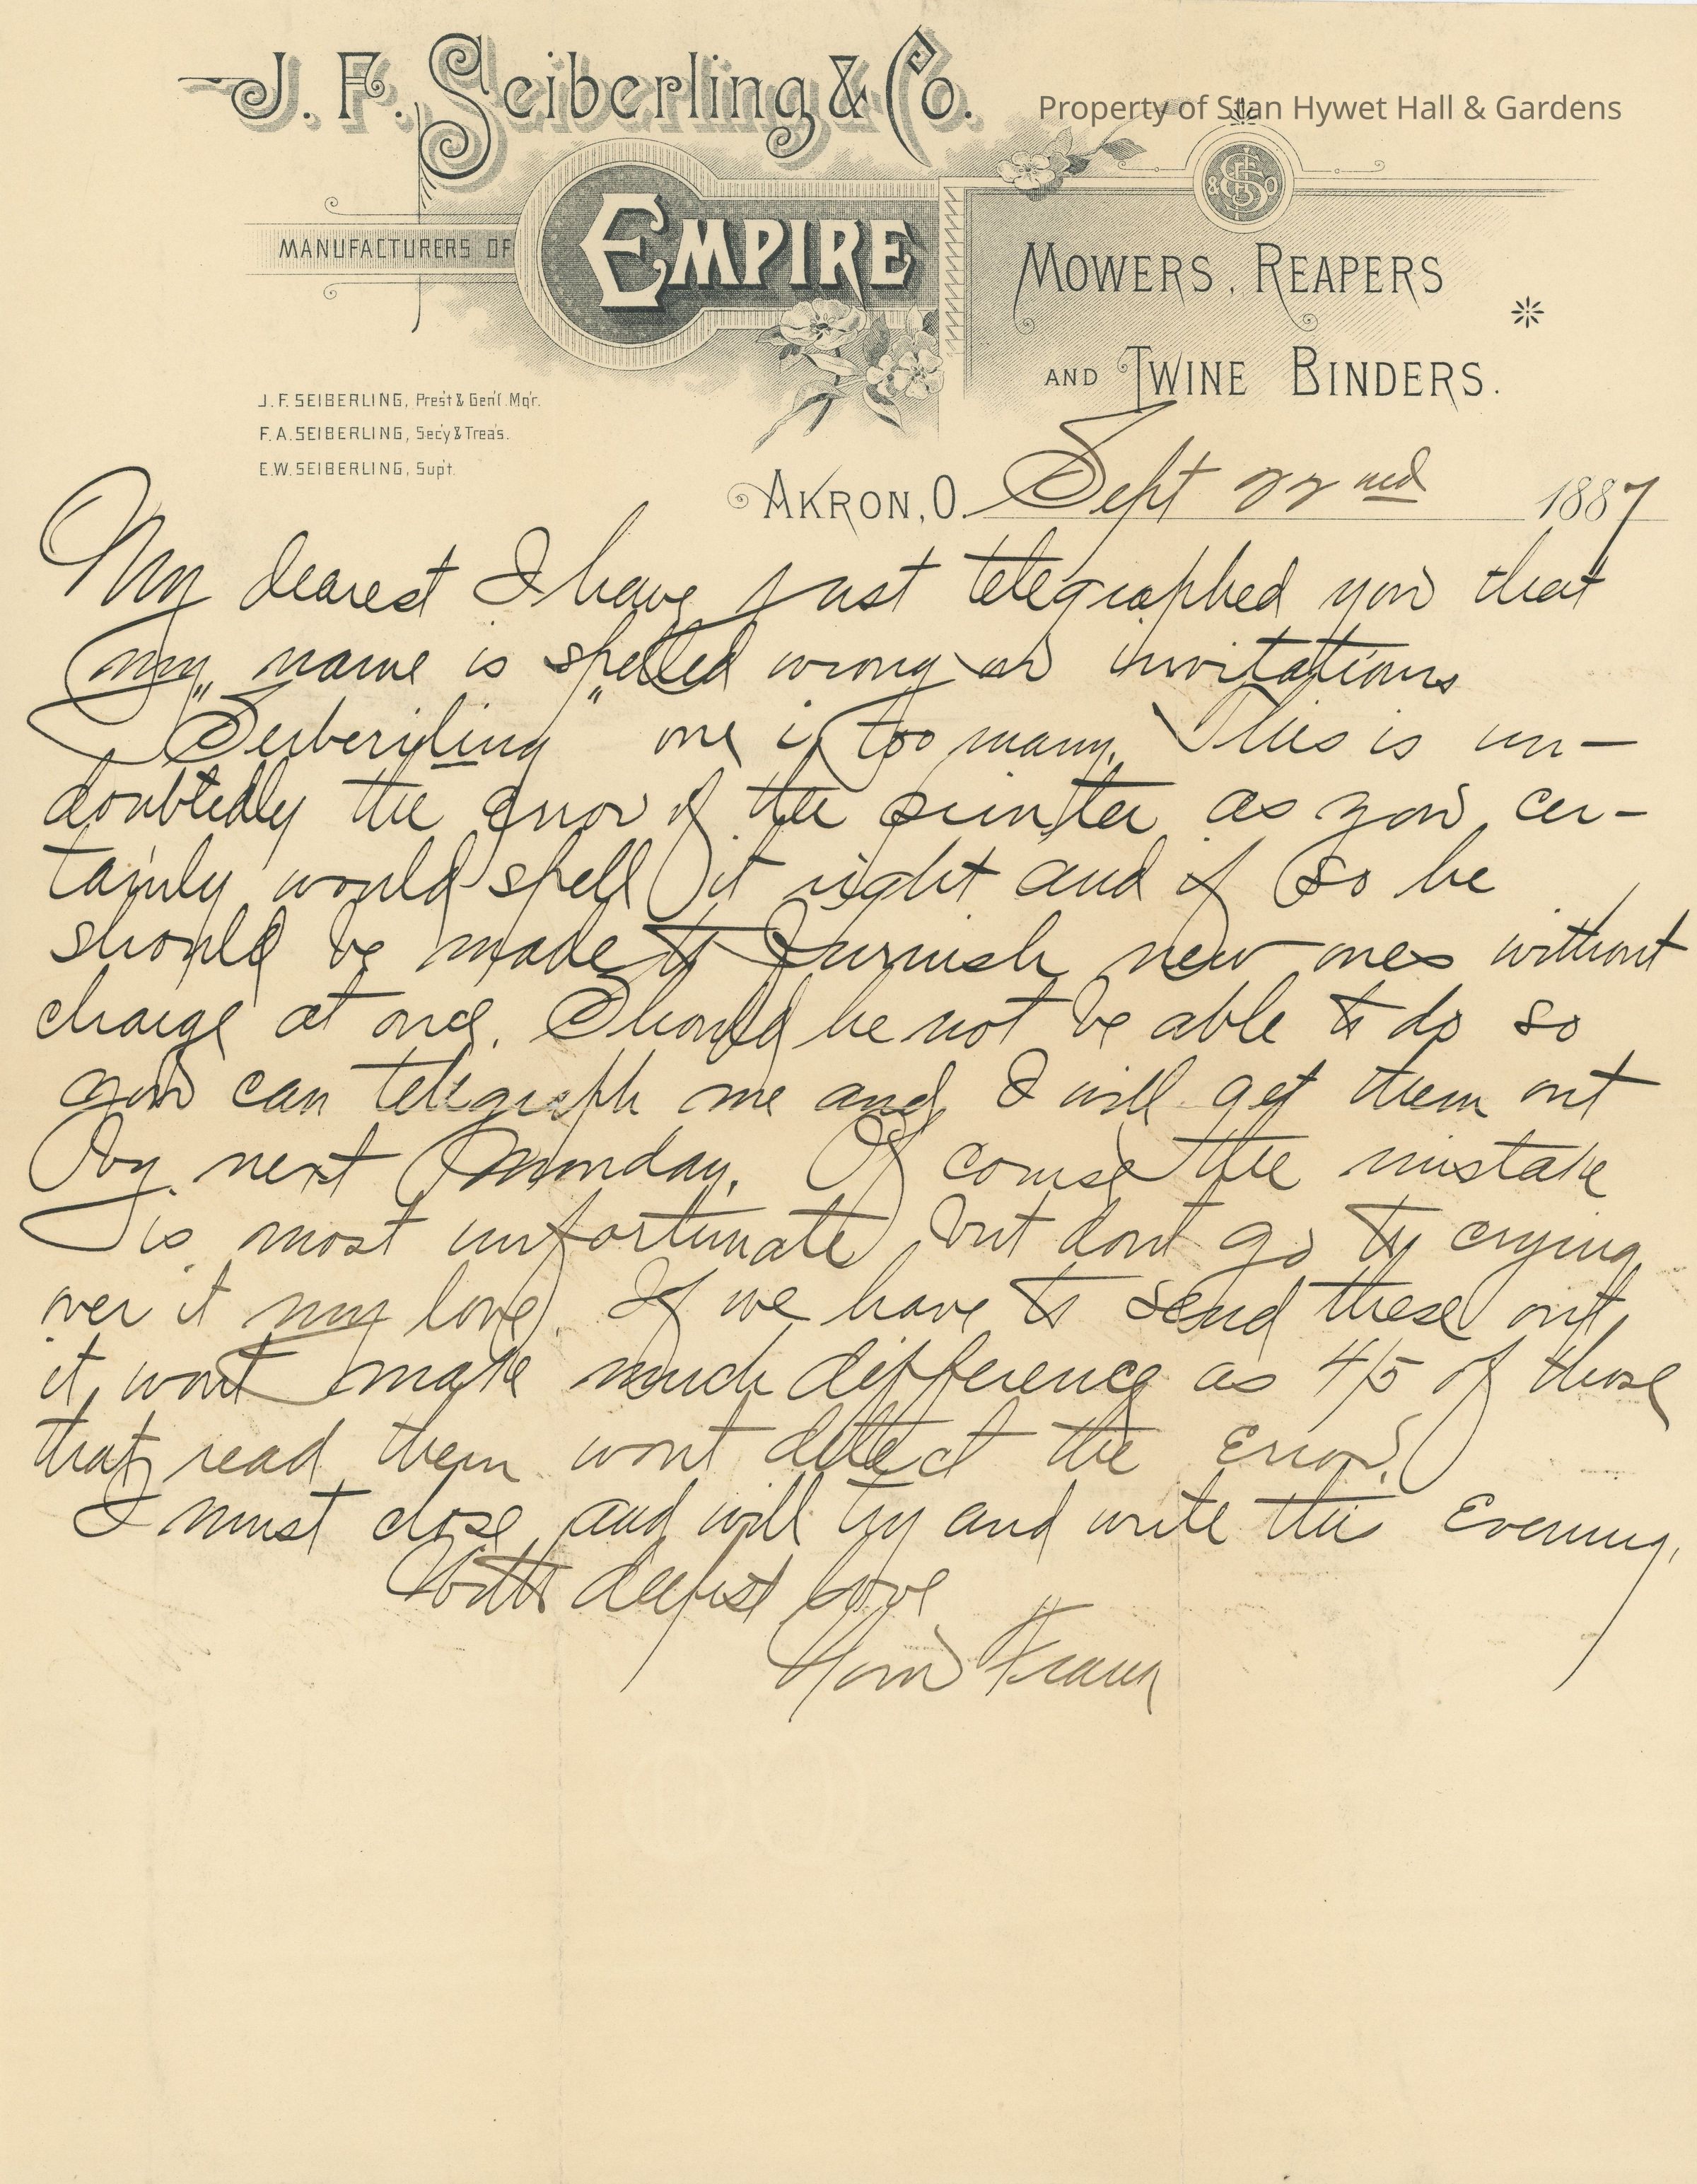 J. F. Seiberling & Co.
Property of Stan Hywet Hall & Gardens
MANUFACTURERS OF
EMPIRE
MOWERS, REAPERS
AND TWINE BINDERS.
J. F. SEIBERLING, Prest & Gen'l Mg'r.
F. A. SEIBERLING, Sec'y & Treas.
E. W. SEIBERLING, Supt.
AKRON, O. Sept 22nd 1887
My dearest I have just telegraphed you that
my name is spelled wrong on invitations
"Seiberiling" one i too many. This is un-
doubtedly the error of the printer as you cer-
tainly would spell it right and if so he
should be made to furnish new ones without
charge at once. Should he not be able to do so
you can telegraph me and I will get them out
by next Monday. Of course the mistake
is most unfortunate but dont go to crying
over it my love. If we have to send these out
it wont make much difference as 4/5 of those
that read them wont detect the error.
I must close and will try and write this evening.
With deepest love
Your Frank